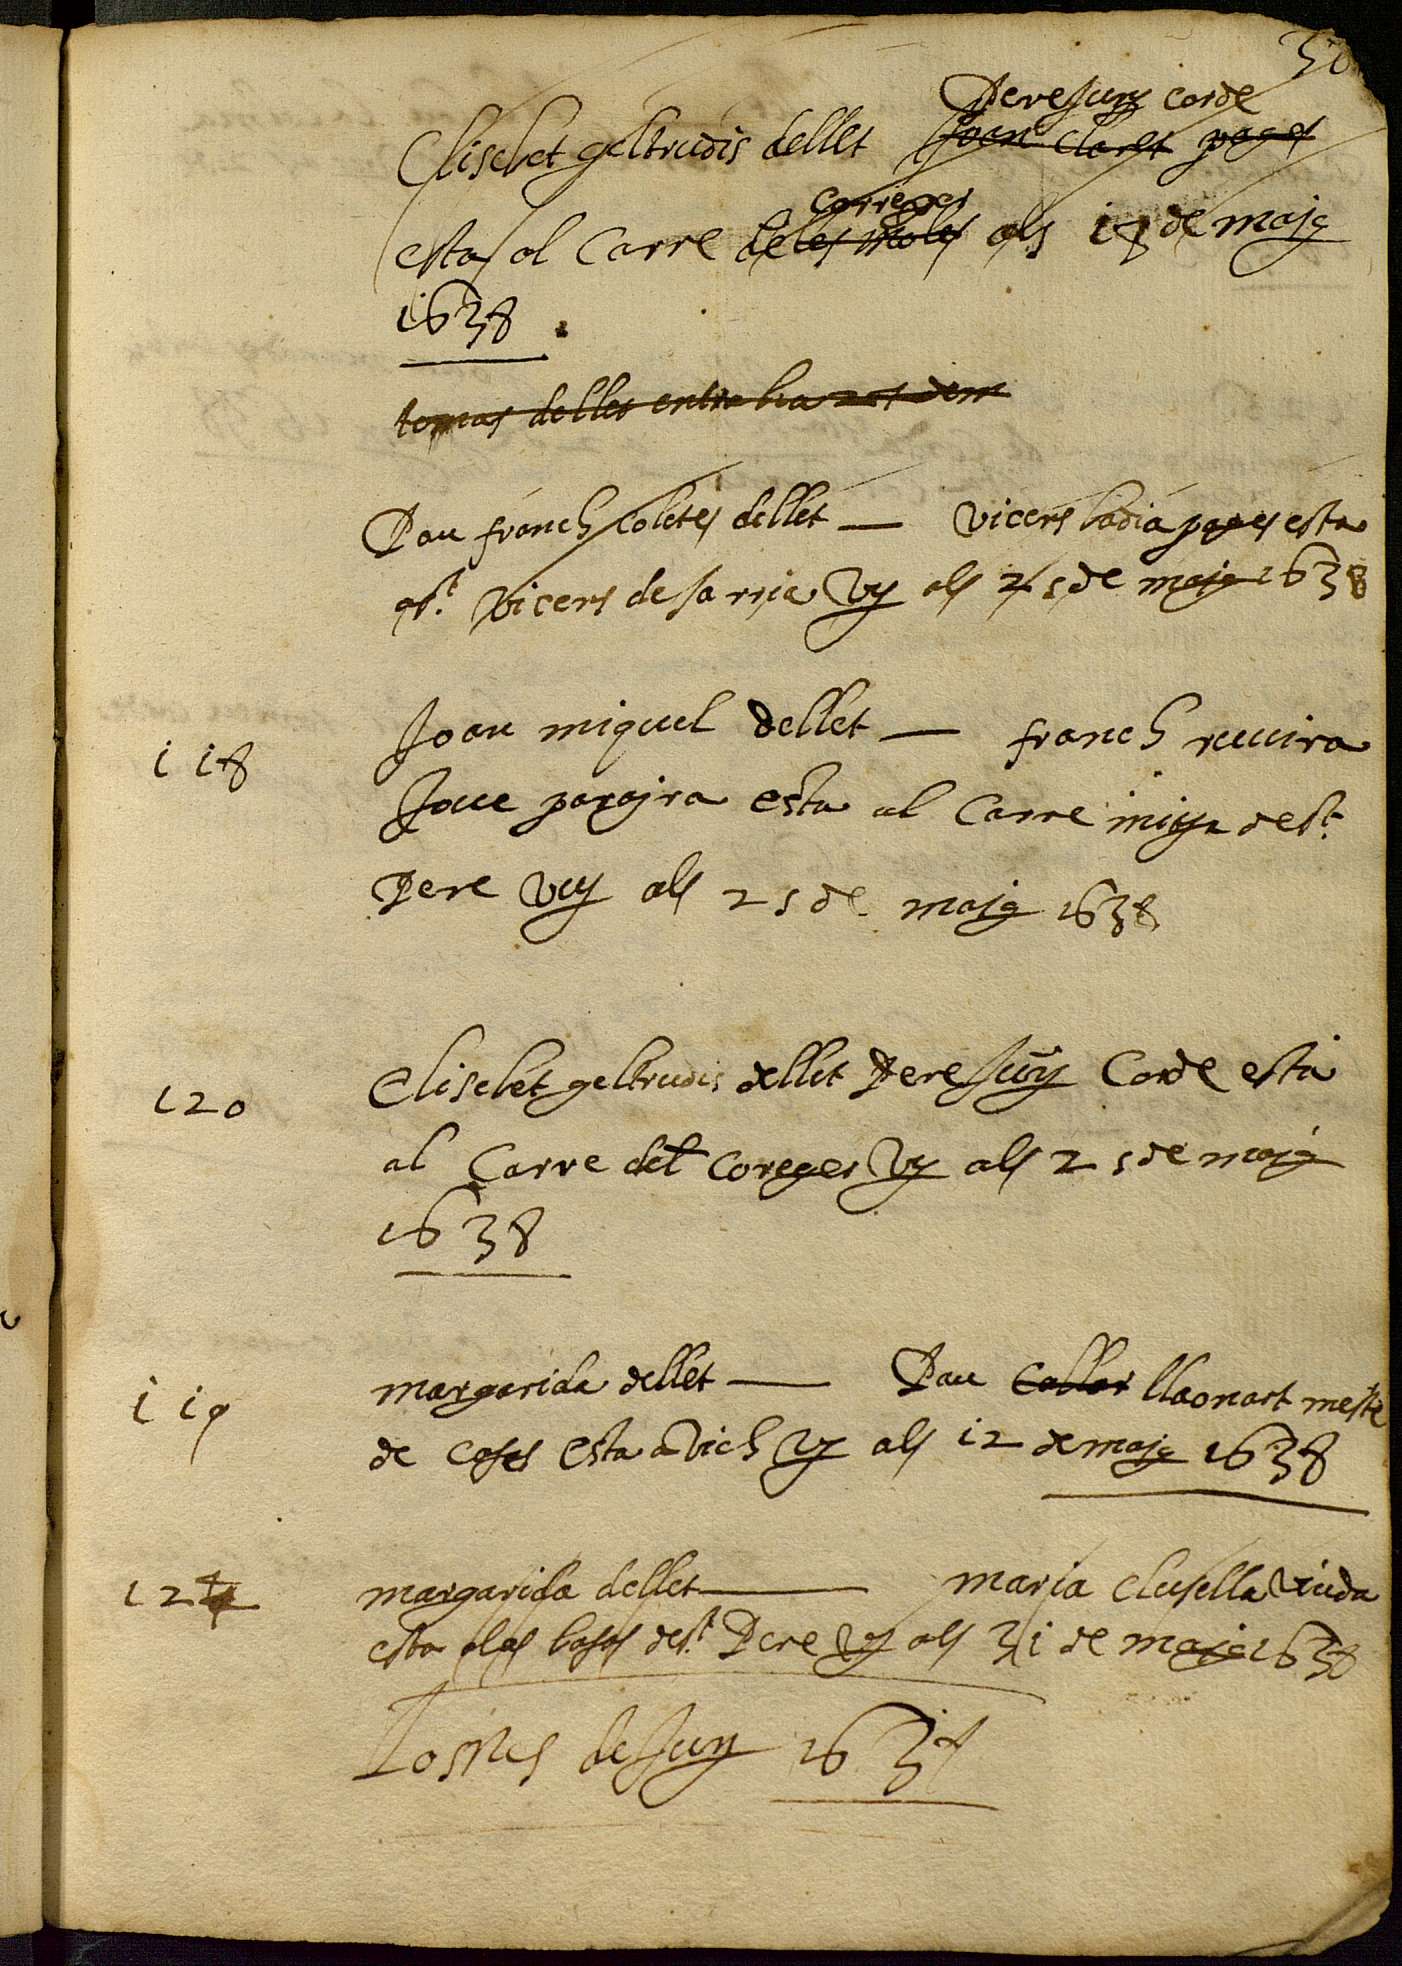 Pere Juny corde
Elisebet geltrudis dellet Joan Claret pages
corregers
esta al Carre de les moles als 18 de maig
1638
tomas dellet entra
Pau franch coletes dellet — vicens badia pages esta
a St. vicens de sarria vy als 25 de maig 1638
118 Joan miquel dellet — franch ruuira
Joue parayra esta al Carre mitja de St.
Pere vuy als 25 de maig 1638
120 Elisebet geltrudis dellet Pere Juny Corde esta
al Carre dels coreges vy als 25 de maig
1638
119 margarida dellet — Pau llaonart mestre
de cases esta a Vich vy als 12 de maig 1638
margarida dellet — maria clusella viuda
esta a las basas de St. Pere vy als 31 de maig 1638
de Juny 163